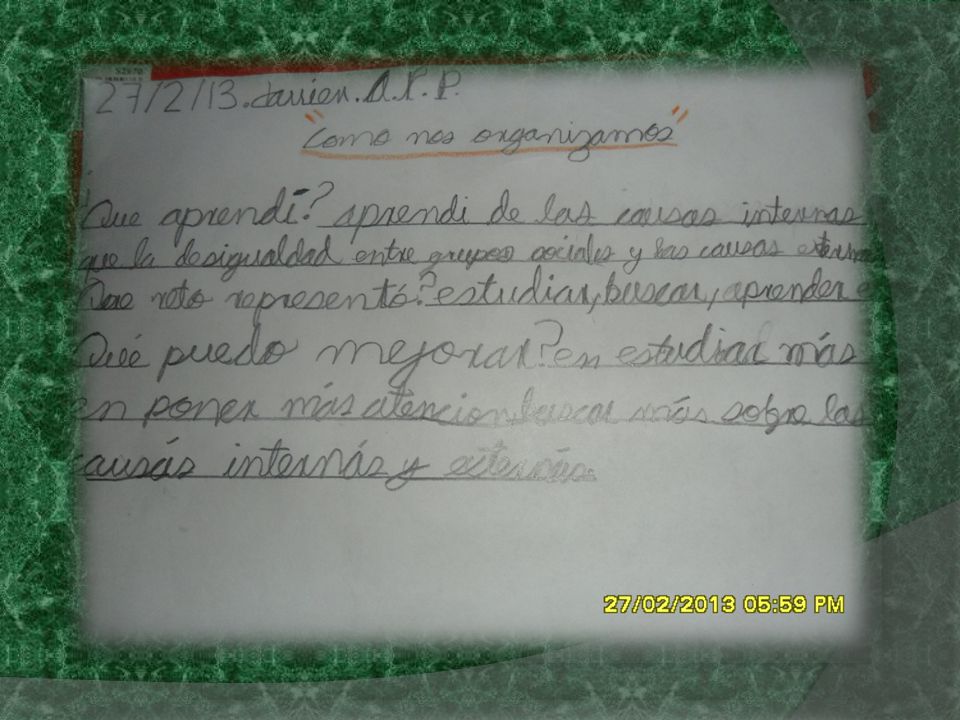 27/2/13. Javier. A. P. P.
"Como nos organizamos"
Que aprendí? aprendi de las causas internas
que la desigualdad entre grupos sociales y las causas externas
Que reto representó? estudiar, buscar, aprender e
Qué puedo mejorar? en estudiar más
en poner más atencion buscar más sobre las
causás internás y externás.
27/02/2013 05:59 PM